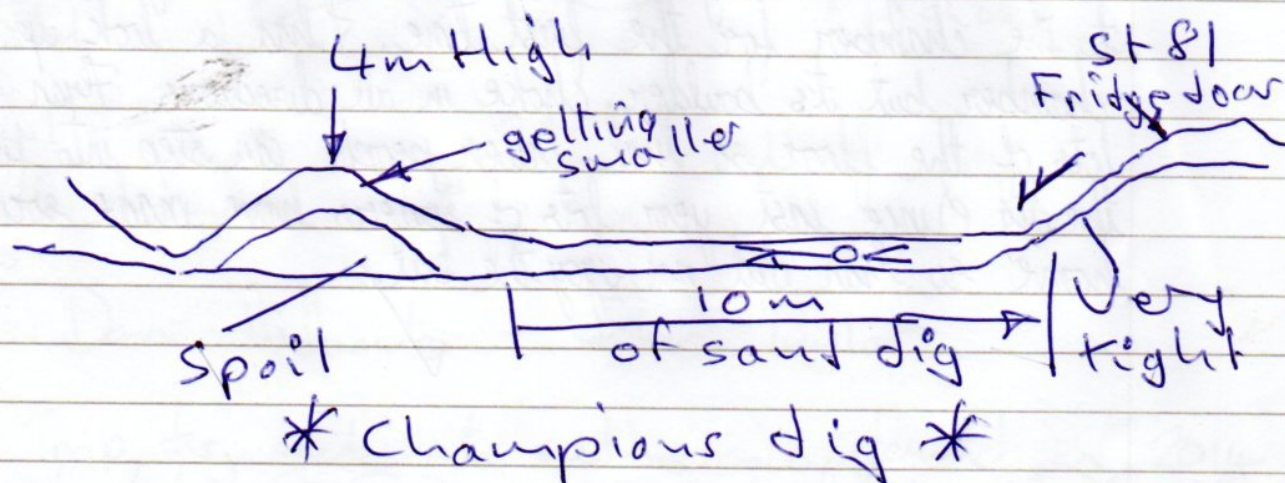 4m High
getting
smaller
St 81
Fridge door
10m
of sand dig
Very
tight
Spoil
* Champions dig *